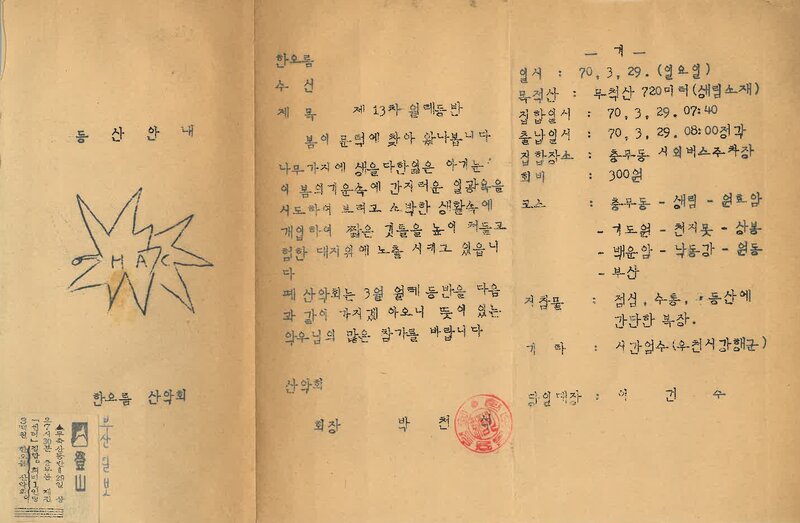 등산안내
HAC
한오름 산악회
부산일보
登山
한오름
수신
제목 제13차 월례등반
봄이 문턱에 찾아 왔나봅니다
나무가지에 생을다한엷은 아기눈
이 봄의기운속에 간지러운 일광욕을
시도하여 보려고 소박한 생활속에
개입하여 짧은 것들을 높이 쳐들고
험한 대지위에 노출 시키고 있읍니
다
폐 산악회는 3월 월례 등반을 다음
과 같이 가지겠 아오니 뜻이 있는
악우님의 많은 참가를 바랍니다
산악회
회장 박천
— 개 —
일시 : 70, 3, 29. (일요일)
목적산 : 무척산 720미터(생림소재)
집합일시 : 70, 3, 29. 07:40
출납일시 : 70, 3, 29. 08:00정각
집합장소 : 충무동 시외버스주차장
회비 : 300원
코스 : 충무동 - 생림 - 원효암
- 기도원 - 천지못 - 상봉
- 백운암 - 낙동강 - 원동
- 부산
지참물 : 점심, 수통, 등산에
간단한 복장.
기타 : 시간엄수(우천시강행군)
당일대장 : 이건수